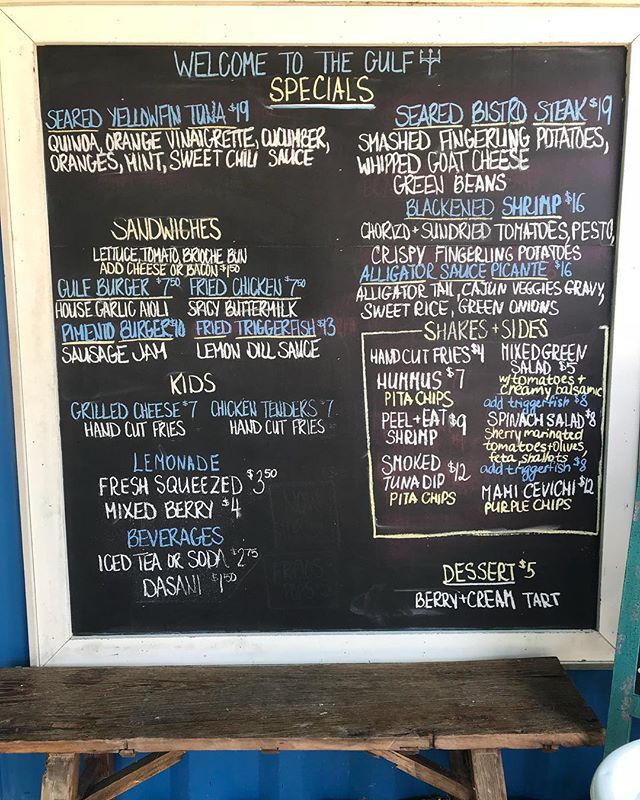 WELCOME TO THE GULF
SPECIALS
SEARED YELLOWFIN TUNA $19
QUINOA, ORANGE VINAIGRETTE, CUCUMBER,
ORANGES, MINT, SWEET CHILI SAUCE
SANDWICHES
LETTUCE, TOMATO, BRIOCHE BUN
ADD CHEESE OR BACON $1.50
GULF BURGER $7.50 FRIED CHICKEN $7.50
HOUSE GARLIC AIOLI SPICY BUTTERMILK
PIMENTO BURGER $10 FRIED TRIGGERFISH $13
SAUSAGE JAM LEMON DILL SAUCE
KIDS
GRILLED CHEESE $7 CHICKEN TENDERS $7
HAND CUT FRIES HAND CUT FRIES
LEMONADE
FRESH SQUEEZED $3.50
MIXED BERRY $4
BEVERAGES
ICED TEA OR SODA $2.75
DASANI $1.50
SEARED BISTRO STEAK $19
SMASHED FINGERLING POTATOES,
WHIPPED GOAT CHEESE
GREEN BEANS
BLACKENED SHRIMP $16
CHORIZO + SUNDRIED TOMATOES, PESTO,
CRISPY FINGERLING POTATOES
ALLIGATOR SAUCE PICANTE $16
ALLIGATOR TAIL, CAJUN VEGGIES GRAVY,
SWEET RICE, GREEN ONIONS
SHAKES + SIDES
HAND CUT FRIES $4
HUMMUS $7
PITA CHIPS
PEEL + EAT $9
SHRIMP
SMOKED
TUNA DIP $12
PITA CHIPS
MIXED GREEN
SALAD $5
w/tomatoes +
creamy balsamic
add triggerfish $8
SPINACH SALAD $8
sherry marinated
tomatoes + olives,
feta, shallots,
add triggerfish $8
MAHI CEVICHI $12
PURPLE CHIPS
DESSERT $5
BERRY + CREAM TART